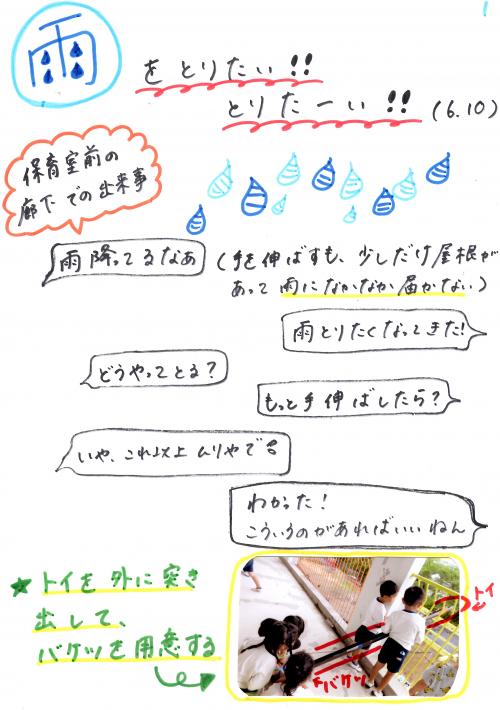 1
雨
をとりたい!!
とりたーい!! (6.10)
保育室前の
廊下での出来事
雨降ってるなあ
(手を伸ばすも、少しだけ屋根が
あって雨になかなか届かない)
雨とりたくなってきた!
どうやってとる?
もっと手伸ばしたら?
いや、これ以上ムリやで
わかった!
こういうのがあればいいねん
★トイを外に突き
出して、
バケツを用意する
トイ
バケツ